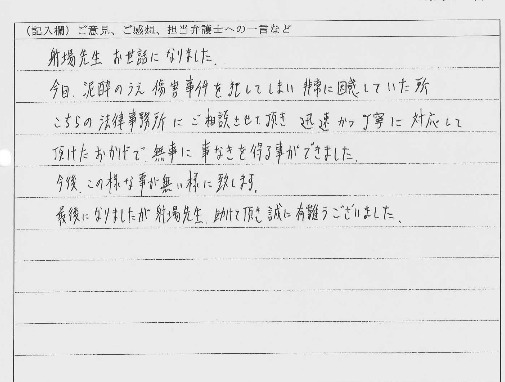 (記入欄)ご意見、ご感想、担当弁護士への一言など
射場先生 お世話になりました。
今回、泥酔のうえ 傷害事件を犯してしまい 非常に困惑していた所
こちらの 法律事務所に ご相談させて頂き 迅速かつ丁寧に 対応して
頂けた おかげで 無事に 事なきを得る事ができました。
今後、この様な事が無い様に致します。
最後になりましたが 射場先生、助けて頂き 誠に 有難うございました。